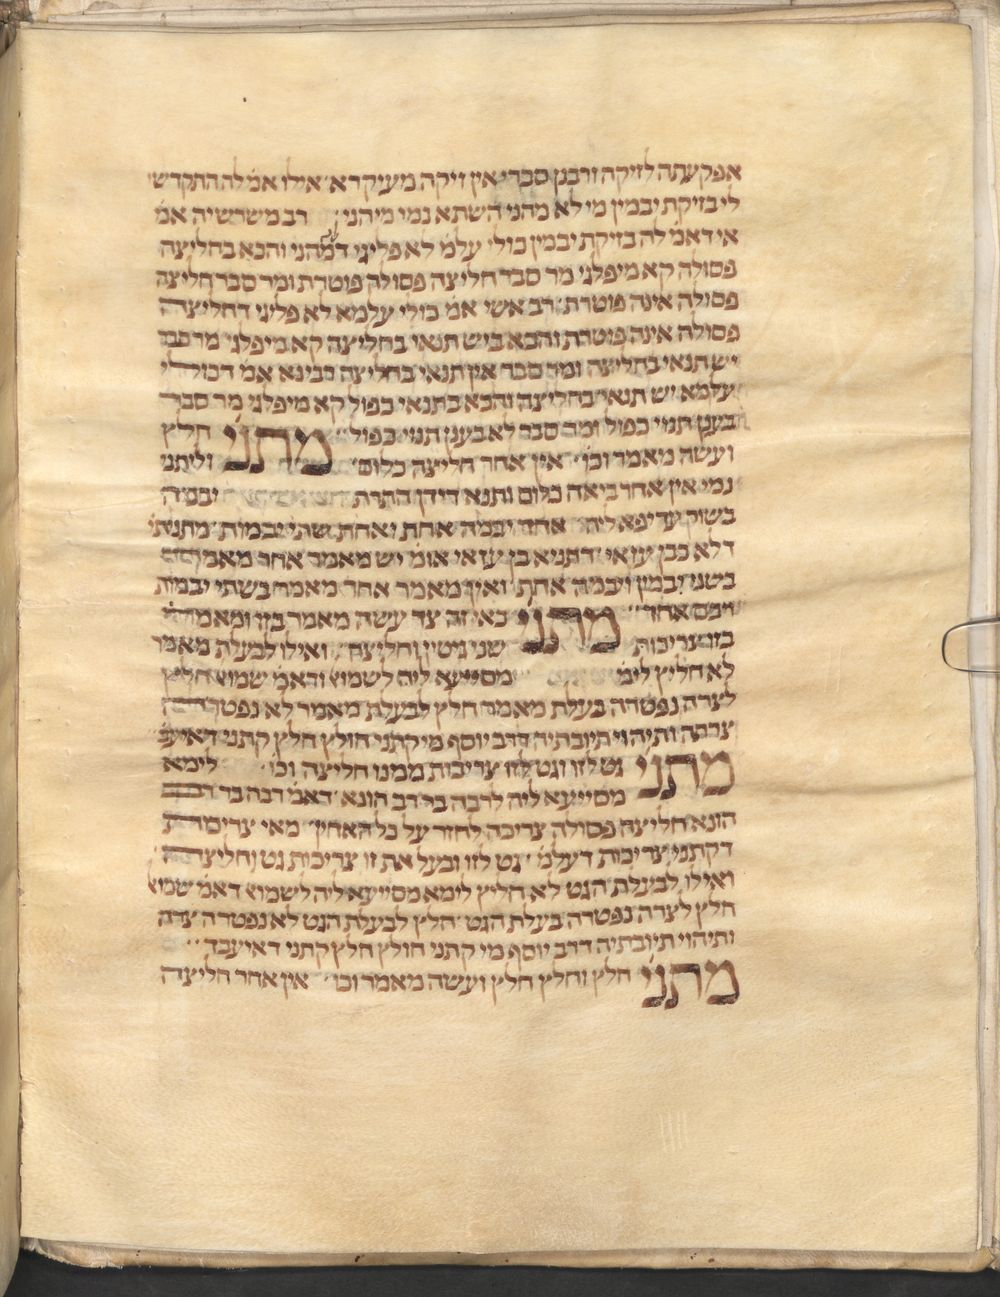 אפקעתה לזיקה ורבנן סברי אין זיקה מעיקרא אילו אמ׳ לה התקדשי
לי בזיקת יבמין מי לא מהני השתא נמי מיהני רב משרשיה אמ׳
אי דאמ׳ לה בזיקת יבמין כולי עלמ׳ לא פליגי דמהני והכא בחליצה
פסולה קא מיפלגי מר סבר חליצה פסולה פוטרת ומר סבר חליצה
פסולה אינה פוטרת רב אשי אמ׳ כולי עלמא לא פליגי דחליצה
פסולה אינה פוטרת והכא ביש תנאי בחליצה קא מיפלגי מר סבר
יש תנאי בחליצה ומר סבר אין תנאי בחליצה רבינא אמ׳ דכולי
עלמא יש תנאי בחליצה והכא בתנאי כפול קא מיפלגי מר סבר
בענן תנאי כפול ומר סבר לא בענן תנאי כפול מתני׳ חלץ
ועשה מאמר וכו׳ אין אחר חליצה כלום וליתני
נמי אין אחר ביאה כלום ותנא דידן התרת יבמה
בשוק עדיפא ליה אחד יבמה אחת ואחת שתי יבמות מתניתי׳
דלא כבן עזאי דתניא בן עזאי אומ׳ יש מאמר אחר מאמר
בשני יבמין ויבמה אחת ואין מאמר אחר מאמר בשתי יבמות
ויבם אחד מתני׳ כאי זה צד עשה מאמר בזו ומאמר
בזו צריכות שני גיטין וחליצה ואילו לבעלת מאמר
לא חליץ לימ׳ מסייעא ליה לשמוא׳ ודאמ׳ שמוא׳ חלץ
לצרה נפטרה בעלת מאמר חלץ לבעלת מאמר לא נפטרה
צרתה ותיהוי תיובתיה דרב יוסף מי קתני חולץ חלץ קתני דאיעב׳
מתני׳ גט לזו וגט לזו צריכות ממנו חליצה וכו׳ לימא
מסייעא ליה לרבה בר רב הונא דאמ׳ רבה בר רב
הונא חליצה פסולה צריכה לחזר על כל האחין מאי צריכות
דקתני צריכות דעלמ׳ גט לזו ובעל את זו צריכות גט וחליצה
ואילו לבעלת הגט לא חליץ לימא מסייעא ליה לשמוא׳ דאמ׳ שמוא׳
חלץ לצרה נפטרה בעלת הגט חלץ לבעלת הגט לא נפטרה צרה
ותיהוי תיובתיה דרב יוסף מי קתני חולץ חלץ קתני דאיעבד
מתני׳ חלץ וחלץ חלץ ועשה מאמר וכו׳ אין אחר חליצה